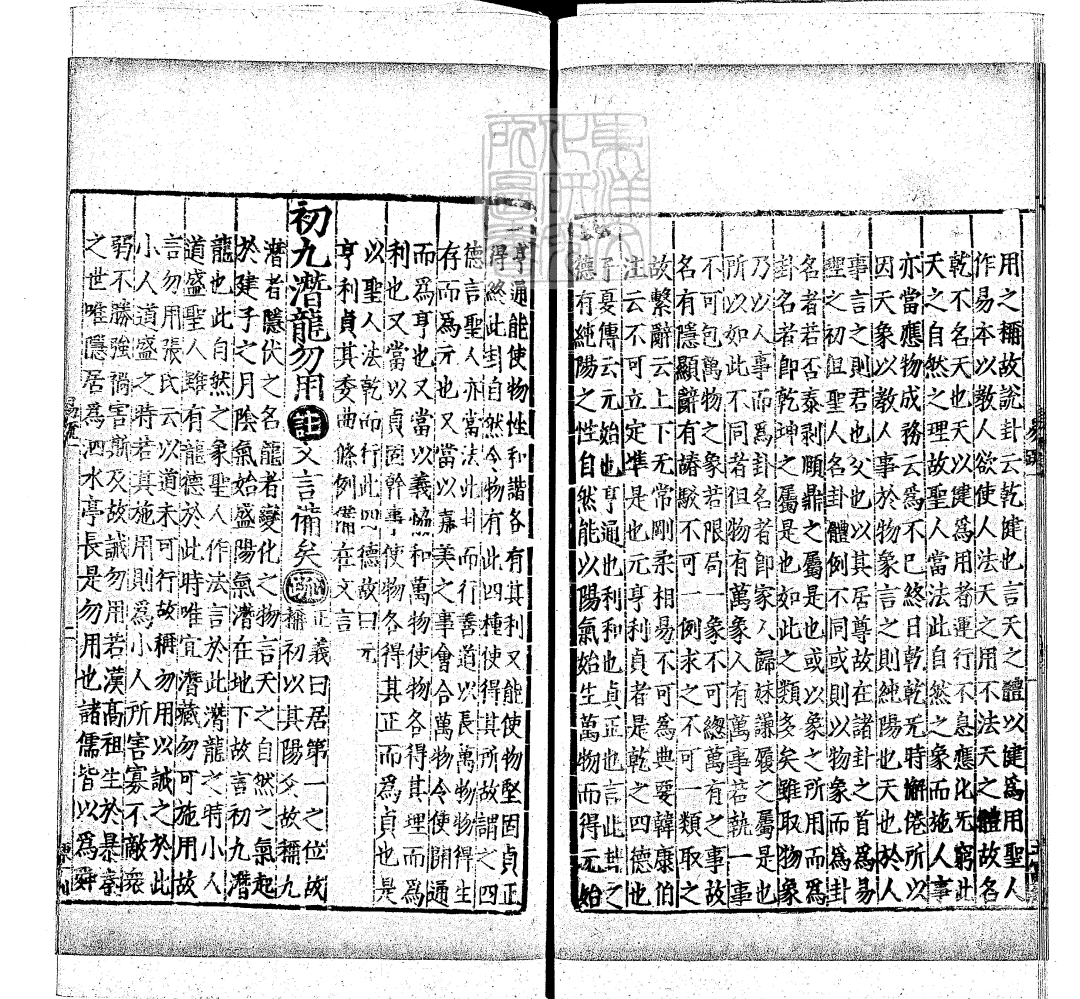 用之稱故説卦云乾健也言天之體以健爲用聖人
作易本以教人欲使人法天之用不法天之體故名
乾不名天也天以健爲用者運行不息應化无窮此
天之自然之理故聖人當法此自然之象而施人事
亦當應物成務云爲不已終日乾乾无時懈倦所以
因天象以教人事於物象言之則純陽也天也於人
事言之則君也父也以其居尊故在諸卦之首爲易
理之初但聖人名卦體例不同或則以物象而爲卦
名者若否泰剥頤鼎之屬是也或以象之所用而爲
卦名者若即乾坤之屬是也如此之類多矣雖取物象
乃以人事而爲卦名者即家人歸妹謙履之屬是也
所以如此不同者但物有萬象人有萬事若執一事
不可包萬物之象若限局一象不可總萬有之事故
名有隱顯辭有踳駮不可一例求之不可一類取之
故繫辭云上下无常剛柔相易不可爲典要韓康伯
注云不可立定準是也元亨利貞者是乾之四德也
子夏傳云元始也亨通也利和也貞正也言此卦之
德有純陽之性自然能以陽氣始生萬物而得元始
亨通能使物性和諧各有其利又能使物堅固貞正
得終此卦自然令物有此四種使得其所故謂之四
德言聖人亦當法此卦而行善道以長萬物物得生
存而爲元也又當以嘉美之事會合萬物令使開通
而爲亨也又當以義協和萬物使物各得其理而爲
利也又當以貞固幹事使物各得其正而爲貞也是
以聖人法乾而行此四德故曰元
亨利貞其委曲條例備在文言
初九潛龍勿用 註 文言備矣 疏 正義曰居第一之位故
稱初以其陽爻故稱九
潛者隱伏之名龍者變化之物言天之自然之氣起
於建子之月陰氣始盛陽氣潛在地下故言初九潛
龍也此自然之象聖人作法言於此潛龍之時小人
道盛聖人雖有龍德於此時唯宜潛藏勿可施用故
言勿用張氏云以道未可行故稱勿用以誡之於此
小人道盛之時若其施用則爲小人所害寡不敵衆
弱不勝強禍害斯及故誡勿用若漢高祖生於暴秦
之世唯隱居爲泗水亭長是勿用也諸儒皆以爲舜